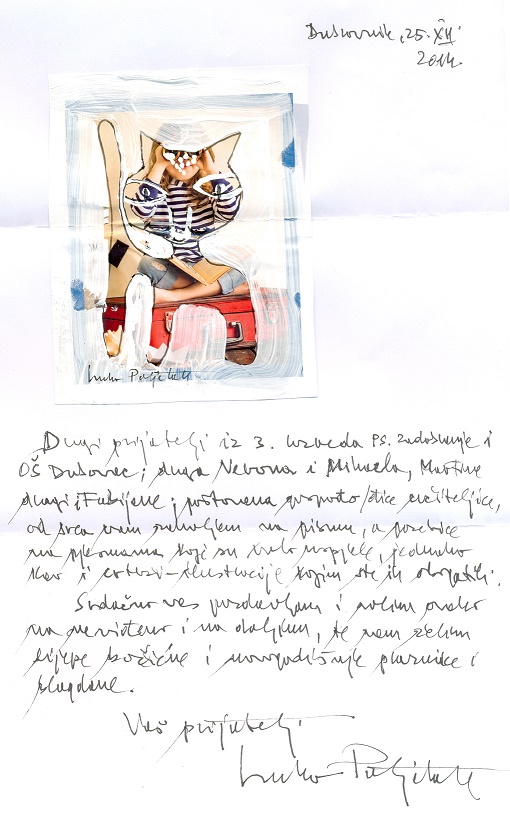 Dubrovnik, 25. XII.
2014.
Luko Paljetak
Dragi prijatelji iz 3. razreda PŠ. Zadobarje i
OŠ Dubovac; draga Nevena i Mihaela, Martine
dragi, Fabijane; poštovana gospođo/đice učiteljice,
od srca vam zahvaljujem na pismu, a posebice
na pjesmama koje su vrlo uspjele, jednako
kao i crteži-ilustracije kojim ste ih obogatili.
Srdačno vas pozdravljam i volim onako
na neviđeno i na daljinu, te vam želim
lijepe božićne i novogodišnje praznike i
blagdane.
Vaš prijatelj
Luko Paljetak